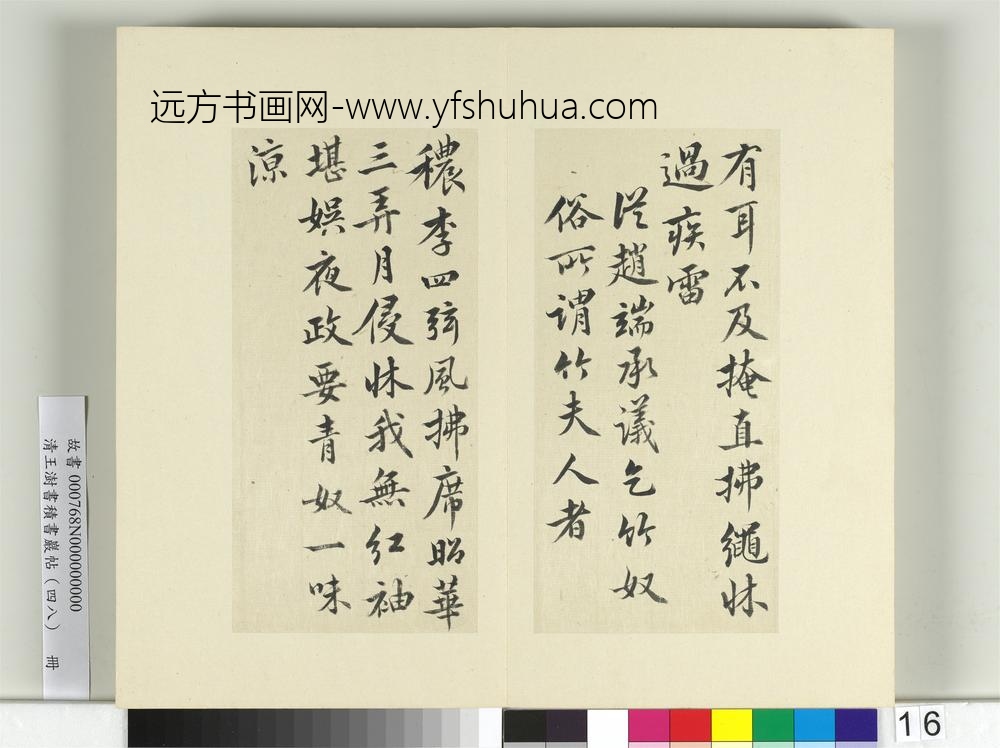 远方书画网-www.yfshuhua.com
有耳不及掩直拂繩牀
過疾雷
從趙端承議乞竹奴
俗所謂竹夫人者
穠李四弦風拂席昭華
三弄月侵牀我無紅袖
堪娯夜政要青奴一味
涼
故書 000768N000000000
清王澍書積書巖帖(四八) 冊
16